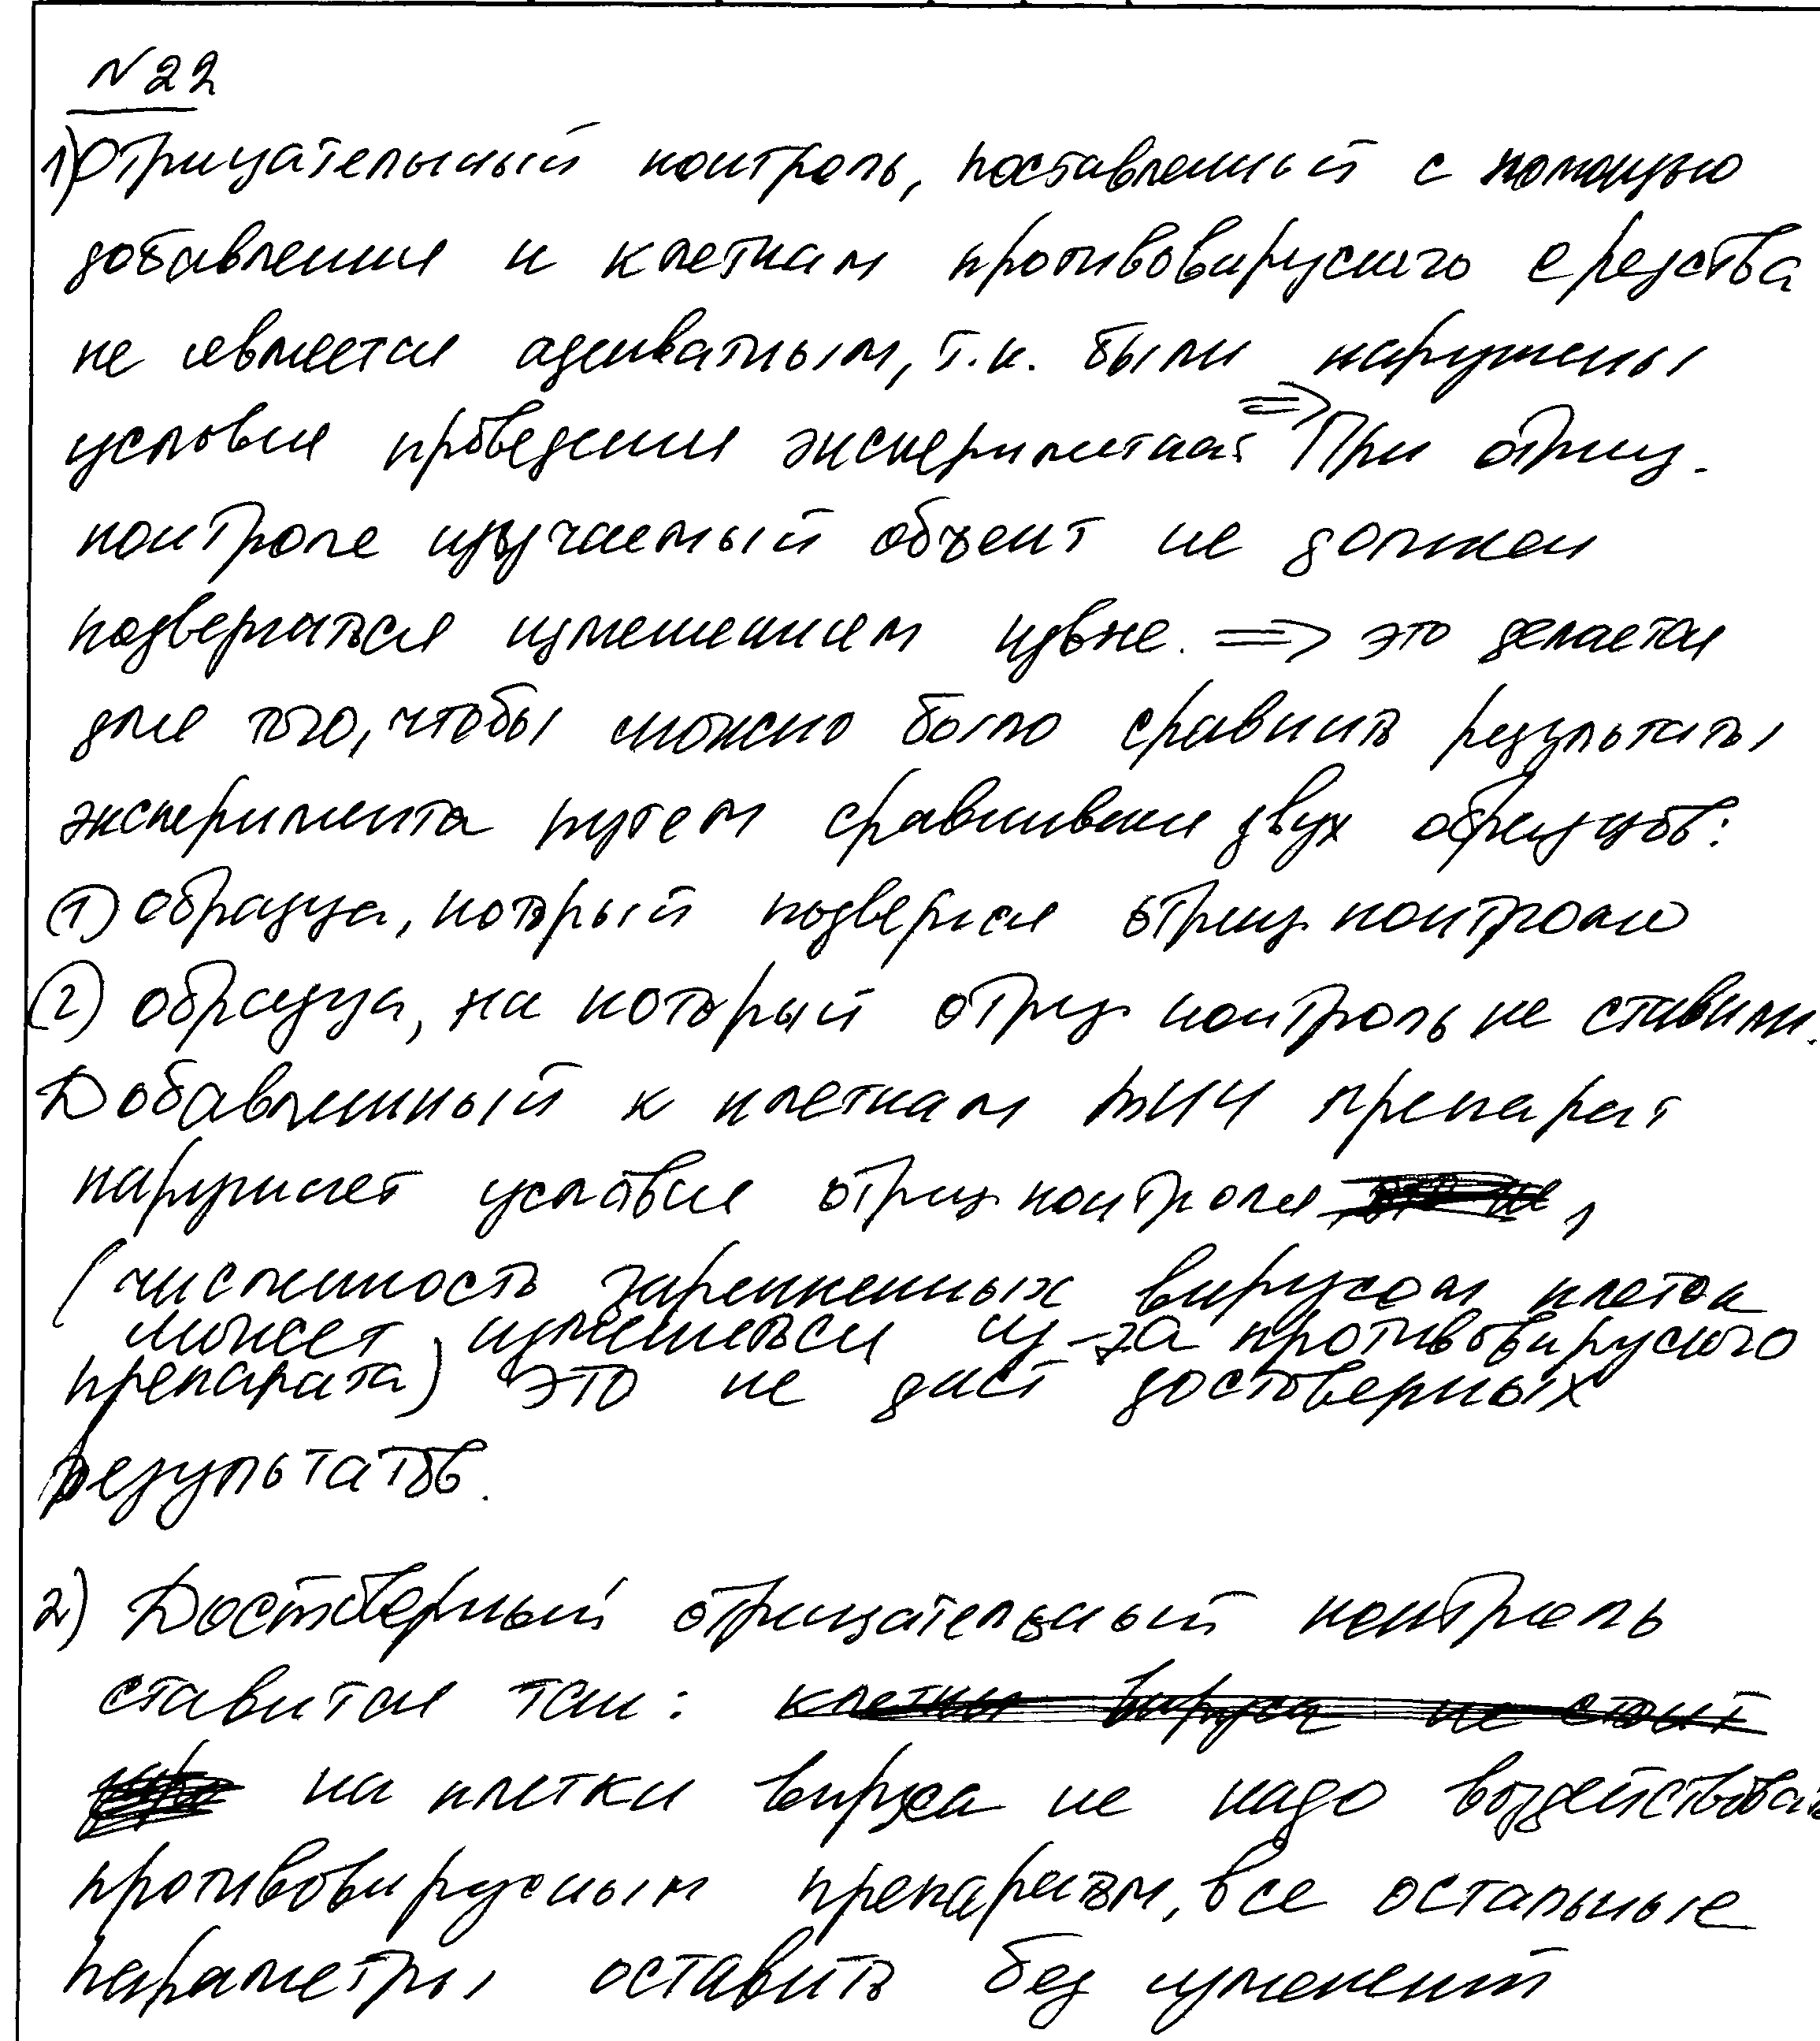 №22
1) Отрицательный контроль, поставленный с помощью
добавления к клеткам противовирусного средства
не является адекватным, т.к. были нарушены
условия проведения эксперимента. => При отриц.
контроле изучаемый объект не должен
подвергаться изменениям извне. => это делается
для того, чтобы можно было сравнить результаты
эксперимента путем сравнивания двух образцов:
(1) образца, который подвергся отриц. контролю
(2) образца, на который отриц. контроль не ставили.
Добавленный к клеткам ВИЧ препарат
нарушает условия отриц. контроля,
(численность зараженных вирусом клеток
может измениться из-за противовирусного
препарата) это не даст достоверных
результатов.
2) Достоверный отрицательный контроль
ставится так: клетки вируса не стоит
на клетки вируса не надо воздействовать
противовирусным препаратом, все остальные
параметры оставить без изменений